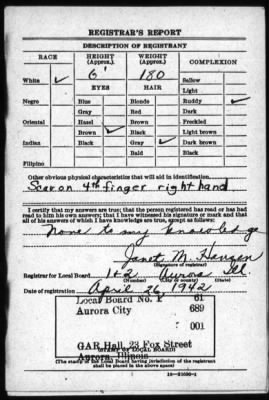 REGISTRAR'S REPORT
DESCRIPTION OF REGISTRANT
RACE HEIGHT (Approx.) WEIGHT (Approx.) COMPLEXION
White ✓ 6' 180 Sallow
EYES HAIR Light
Negro Blue Blonde Ruddy ✓
Gray Red Dark
Oriental Hazel Brown Freckled
Brown ✓ Black Light brown
Indian Black Gray ✓ Dark brown
Bald Black
Filipino
Other obvious physical characteristics that will aid in identification
Scar on 4th finger right hand
I certify that my answers are true; that the person registered has read or has had read to him his own answers; that I have witnessed his signature or mark and that all of his answers of which I have knowledge are true, except as follows:
None to my knowledge
Janet M. Hansen
(Signature of registrar)
Registrar for Local Board 1&2 Aurora Ill.
(Number) (City or county) (State)
Date of registration April 26, 1942
Local Board No. 1 61
Aurora City 689
001
GAR Hall, 23 Fox Street
(STAMP OF LOCAL BOARD)
Aurora, Illinois
(The stamp of the Local Board having jurisdiction of the registrant shall be placed in the above space)